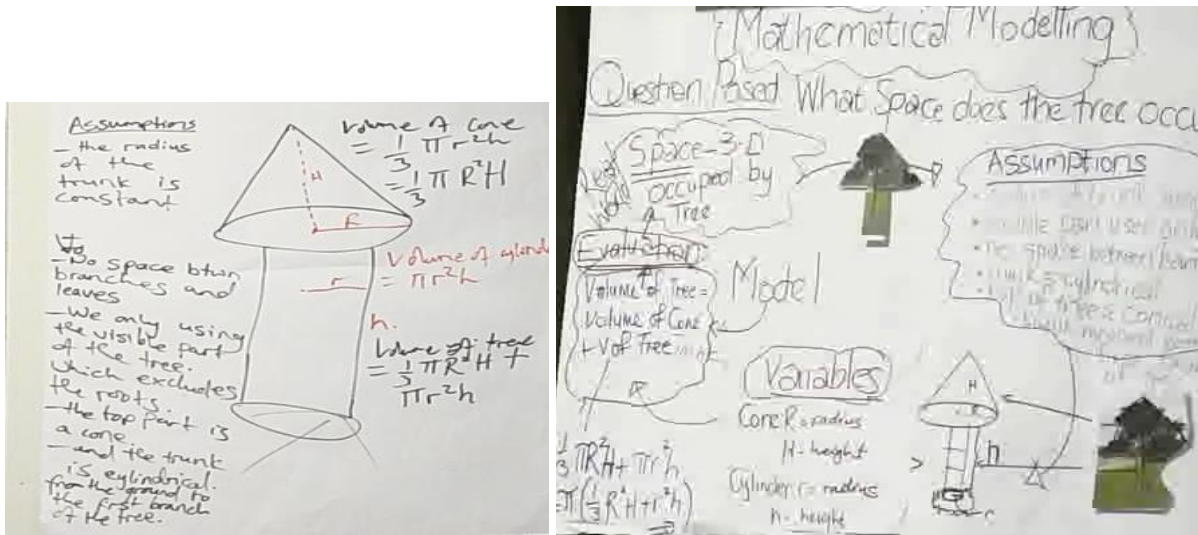 Assumptions
- the radius
of the
trunk is
constant
- No space btwn
branches and
leaves
- We only using
the visible part
of the tree.
which excludes
the roots.
- the top part is
a cone
- and the trunk
is cylindrical.
from the ground to
the first branch
of the tree.
Volume of cone
= 1/3 πr²h
= 1/3 πR²H
H
R
Volume of cylinde
= πr²h
r
h.
Volume of tree
= 1/3 πR²H +
πr²h
Mathematical Modelling
Question Posed What Space does the tree occu
Space - 3-D
occupied by
a Tree
Evaluation
Volume of Tree =
Volume of Cone
+ V of Tree
Model
Assumptions
• visible part used only
• no space between
• trunk = cylindrical
Variables
Cone R = radius
H - height
Cylinder r = radius
h - height
1/3 πR²H + πr²h
= π(1/3 R²H + r²h)
H
R
h
r